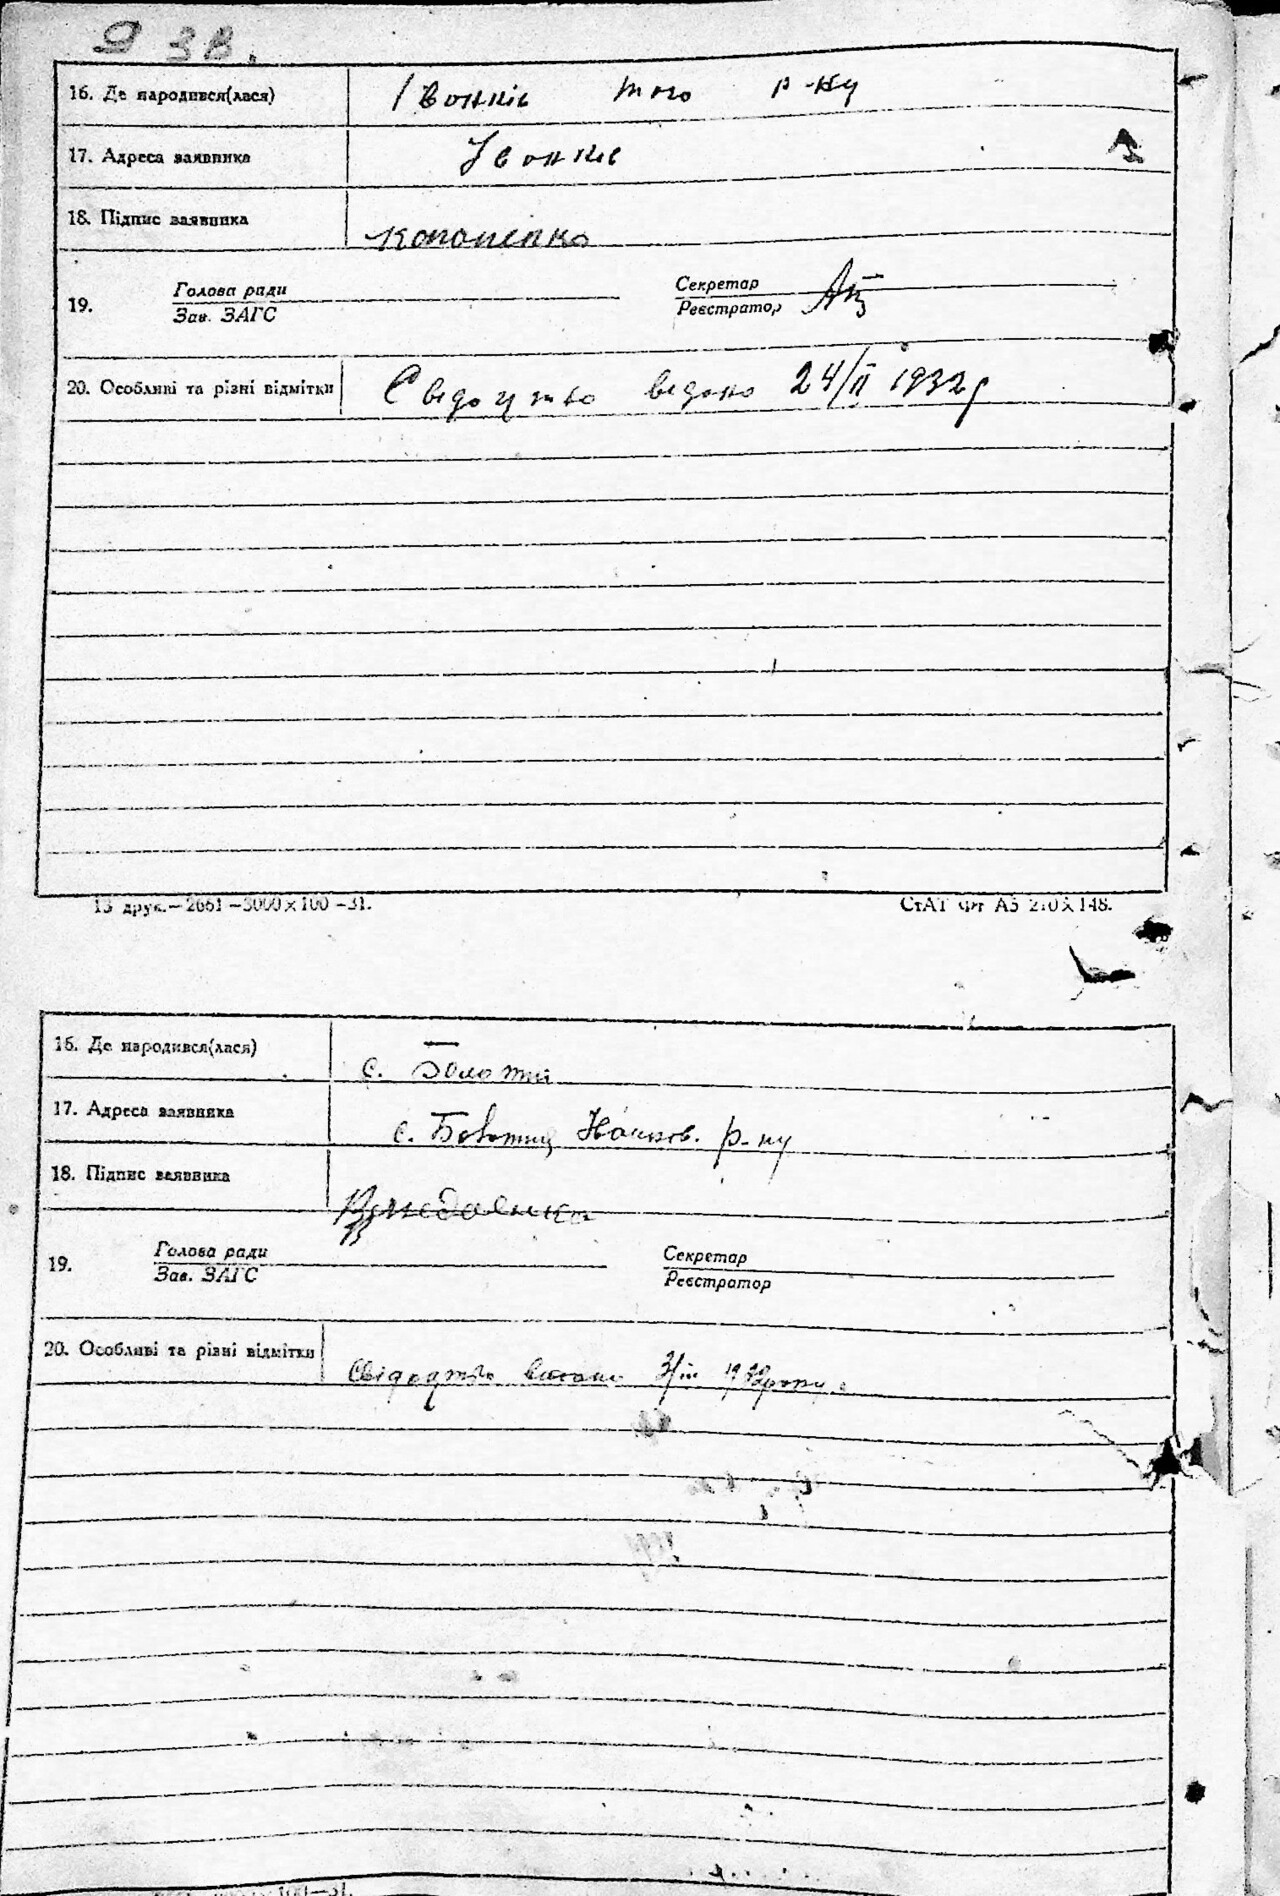 9 зв.
16. Де народився(лася) Івонків того р-ну
17. Адреса заявника Івонків
18. Підпис заявника Кононенко
19. Голова ради
Зав. ЗАГС
Секретар
Реєстратор
20. Особливі та різні відмітки Свідоцтво видано 24/II 1932 р
13 друк.—2661—3000×100—31.
СтАТ Фт А5 210×148.
16. Де народився(лася) с. Болотня
17. Адреса заявника с. Болотня р-ну
18. Підпис заявника
19. Голова ради
Зав. ЗАГС
Секретар
Реєстратор
20. Особливі та різні відмітки Свідоцтво видано 3/III 1932 року.